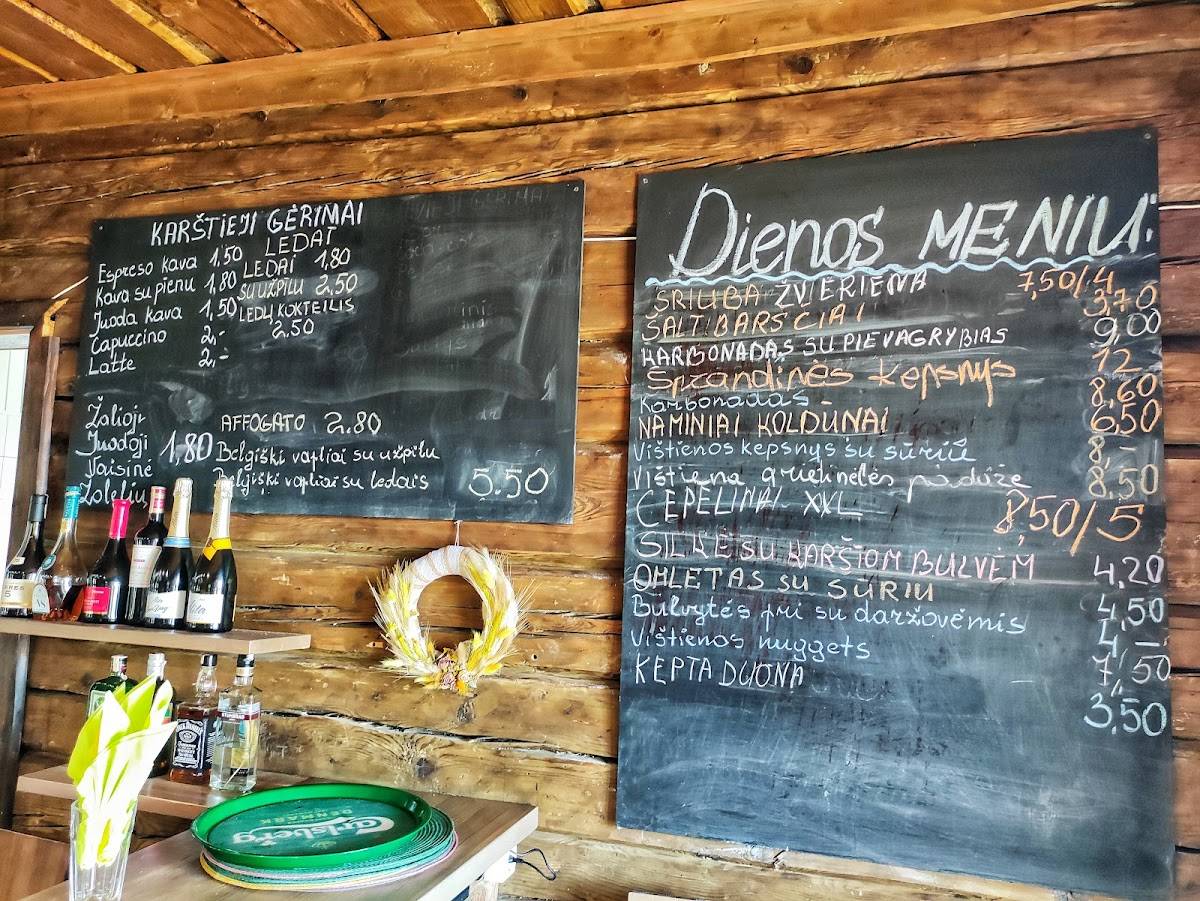 KARŠTIEJI GĖRIMAI
Espreso kava 1,50
Kava su pienu 1,80
Juoda kava 1,50
Capuccino 2,-
Latte 2,-
LEDAI
LEDAI 1,80
SU UŽPILU 2,50
LEDŲ KOKTEILIS
2.50
Žalioji
Juodoji
Vaisinė
Žolelių
1,80
AFFOGATO 2.80
Belgiški vapliai su užpilu
Belgiški vapliai su ledais
5.50
Dienos MENIU:
SRIUBA ŽVĖRIENA 7,50/4
ŠALTIBARŠČIAI 3,70
KARBONADAS SU PIEVAGRYBIAS 9,00
Šprandinės kepsnys 12
Karbonadas 8,60
NAMINIAI KOLDŪNAI 6,50
Vištienos kepsnys su sūriu 8,-
Vištiena grietinėlės padaže 8.50
CEPELINAI XXL 8,50/5
SILKĖ SU KARŠTOM BULVĖM 4,20
OMLETAS SU SŪRIU 4,50
Bulvytės fri su daržovėmis 4-
Vištienos nuggets 7,50
KEPTA DUONA 3,50
Carlsberg
DENMARK